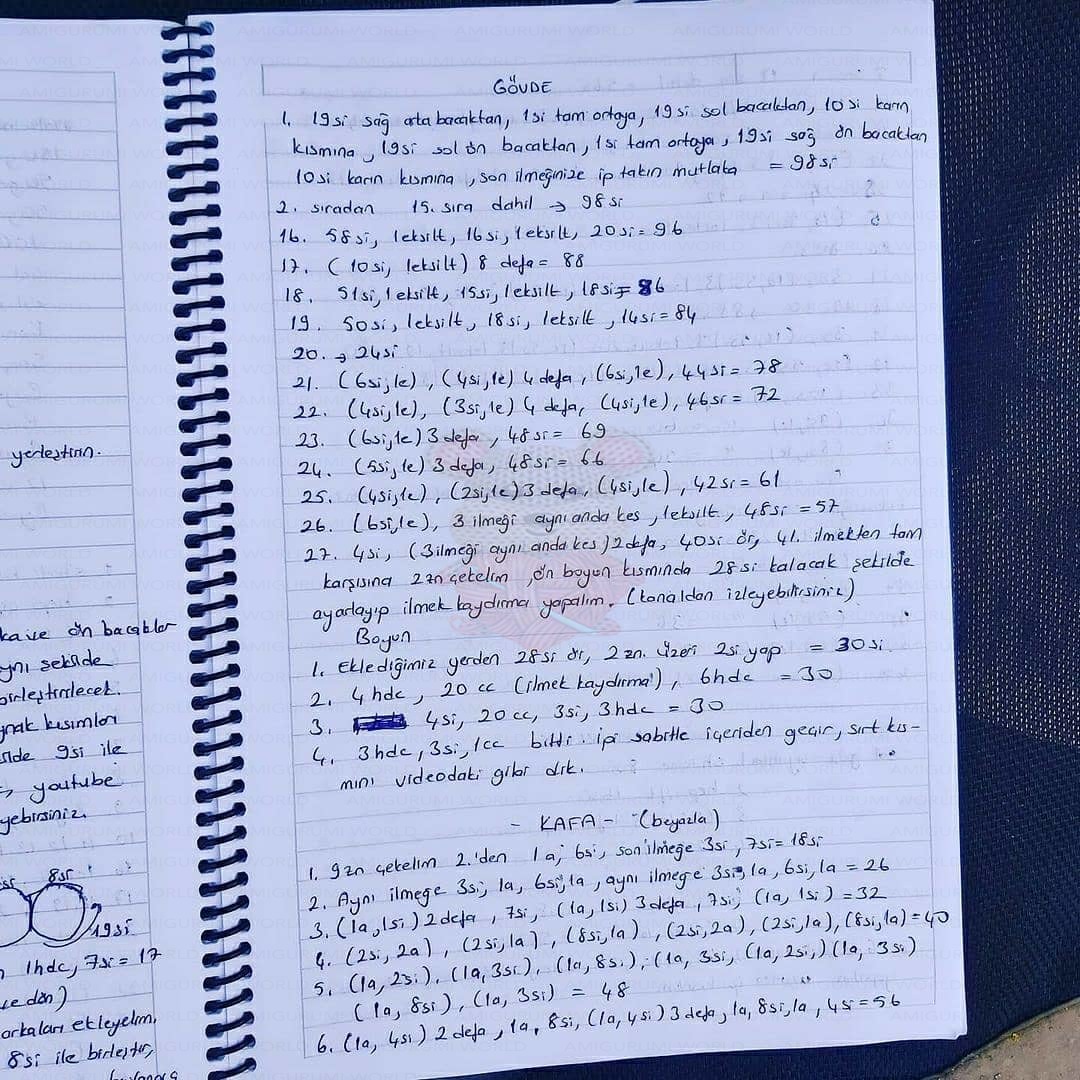 GÖVDE
1. 19si sağ arta bacaktan, 1si tam ortaya, 19si sol bacaktan, 10si karın
kısmına, 19si sol ön bacaktan, 1si tam ortaya, 19si sağ ön bacaktan
10si karın kısmına, son ilmeğinize ip takın mutlaka = 98si
2. sıradan 15. sıra dahil → 98si
16. 58si, 1eksilt, 16si, 1eksilt, 20si = 96
17. (10si, 1eksilt) 8 defa = 88
18. 51si, 1eksilt, 15si, 1eksilt, 18si = 86
19. 50si, 1eksilt, 18si, 1eksilt, 14si = 84
20. → 24si
21. (6si,1e), (4si,1e) 4 defa, (6si,1e), 44si = 78
22. (4si,1e), (3si,1e) 4 defa, (4si,1e), 46si = 72
23. (6si,1e) 3 defa, 48si = 69
24. (5si,1e) 3 defa, 48si = 66
25. (4si,1e), (2si,1e) 3 defa, (4si,1e), 42si = 61
26. (6si,1e), 3 ilmeği aynı anda kes, 1eksilt, 48si = 57
27. 4si, (3ilmeği aynı anda kes) 2 defa, 40si ör, 41. ilmekten tam
karşısına 2zn çekelim, ön boyun kısmında 28si kalacak şekilde
ayarlayıp ilmek kaydırma yapalım. (kanaldan izleyebilirsiniz)
Boyun
1. Eklediğimiz yerden 28si ör, 2 zn. üzeri 2si yap = 30si
2. 4hdc, 20cc (ilmek kaydırma), 6hdc = 30
3. 4si, 20cc, 3si, 3hdc = 30
4. 3hdc, 3si, 1cc bitti. ipi sabitle içeriden geçir, sırt kıs-
mını videodaki gibi dik.
- KAFA - (beyazla)
1. 9zn çekelim 2.'den 1a, 6si, son ilmeğe 3si, 7si = 18si
2. Aynı ilmeğe 3si, 1a, 6si, 1a, aynı ilmeğe 3si, 1a, 6si, 1a = 26
3. (1a, 1si) 2 defa, 7si, (1a, 1si) 3 defa, 7si, (1a, 1si) = 32
4. (2si, 2a), (2si, 1a), (8si, 1a), (2si, 2a), (2si, 1a), (8si, 1a) = 40
5. (1a, 2si), (1a, 3si), (1a, 8si), (1a, 3si, (1a, 2si,) (1a, 3si)
(1a, 8si), (1a, 3si) = 48
6. (1a, 4si) 2 defa, 1a, 8si, (1a, 4si) 3 defa, 1a, 8si, 1a, 4si = 56
yerleştirin.
ön bacaklar
birleştirilecek.
kısımları
9si ile
youtube
8si
19si
1hdc, 7si = 17
ekleyelim.
8si ile birleştir,